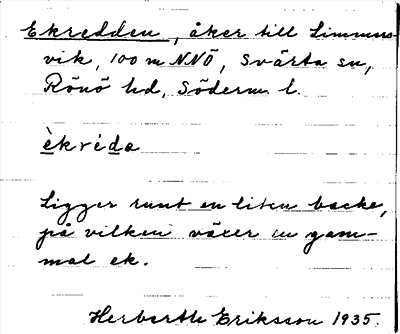 Ekredden, åker till Limmers-
vik, 100 m NNÖ, Svärta sn,
Rönö hd, Söderm. l.
èkréda
Ligger runt en liten backe,
på vilken växer en gam-
mal ek.
Herberth Eriksson 1935.